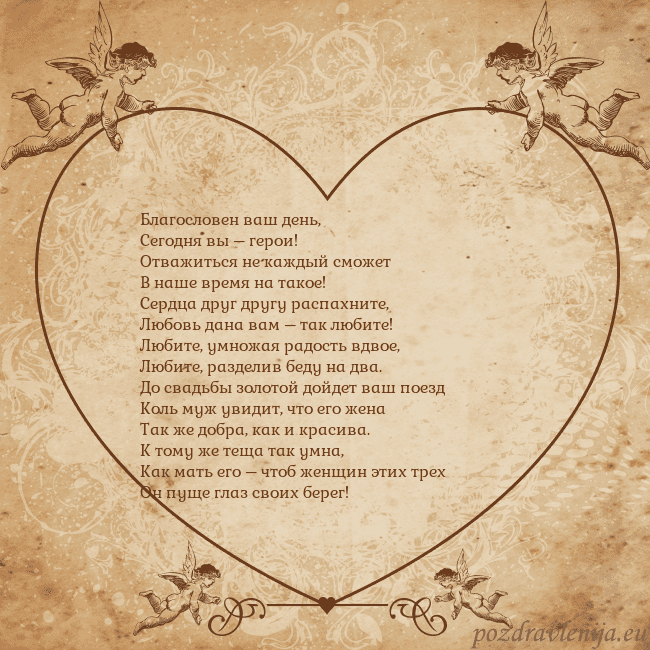 Благословен ваш день,
Сегодня вы – герои!
Отважиться не каждый сможет
В наше время на такое!
Сердца друг другу распахните,
Любовь дана вам – так любите!
Любите, умножая радость вдвое,
Любите, разделив беду на два.
До свадьбы золотой дойдет ваш поезд
Коль муж увидит, что его жена
Так же добра, как и красива.
К тому же теща так умна,
Как мать его – чтоб женщин этих трех
Он пуще глаз своих берег!
pozdravlenija.eu